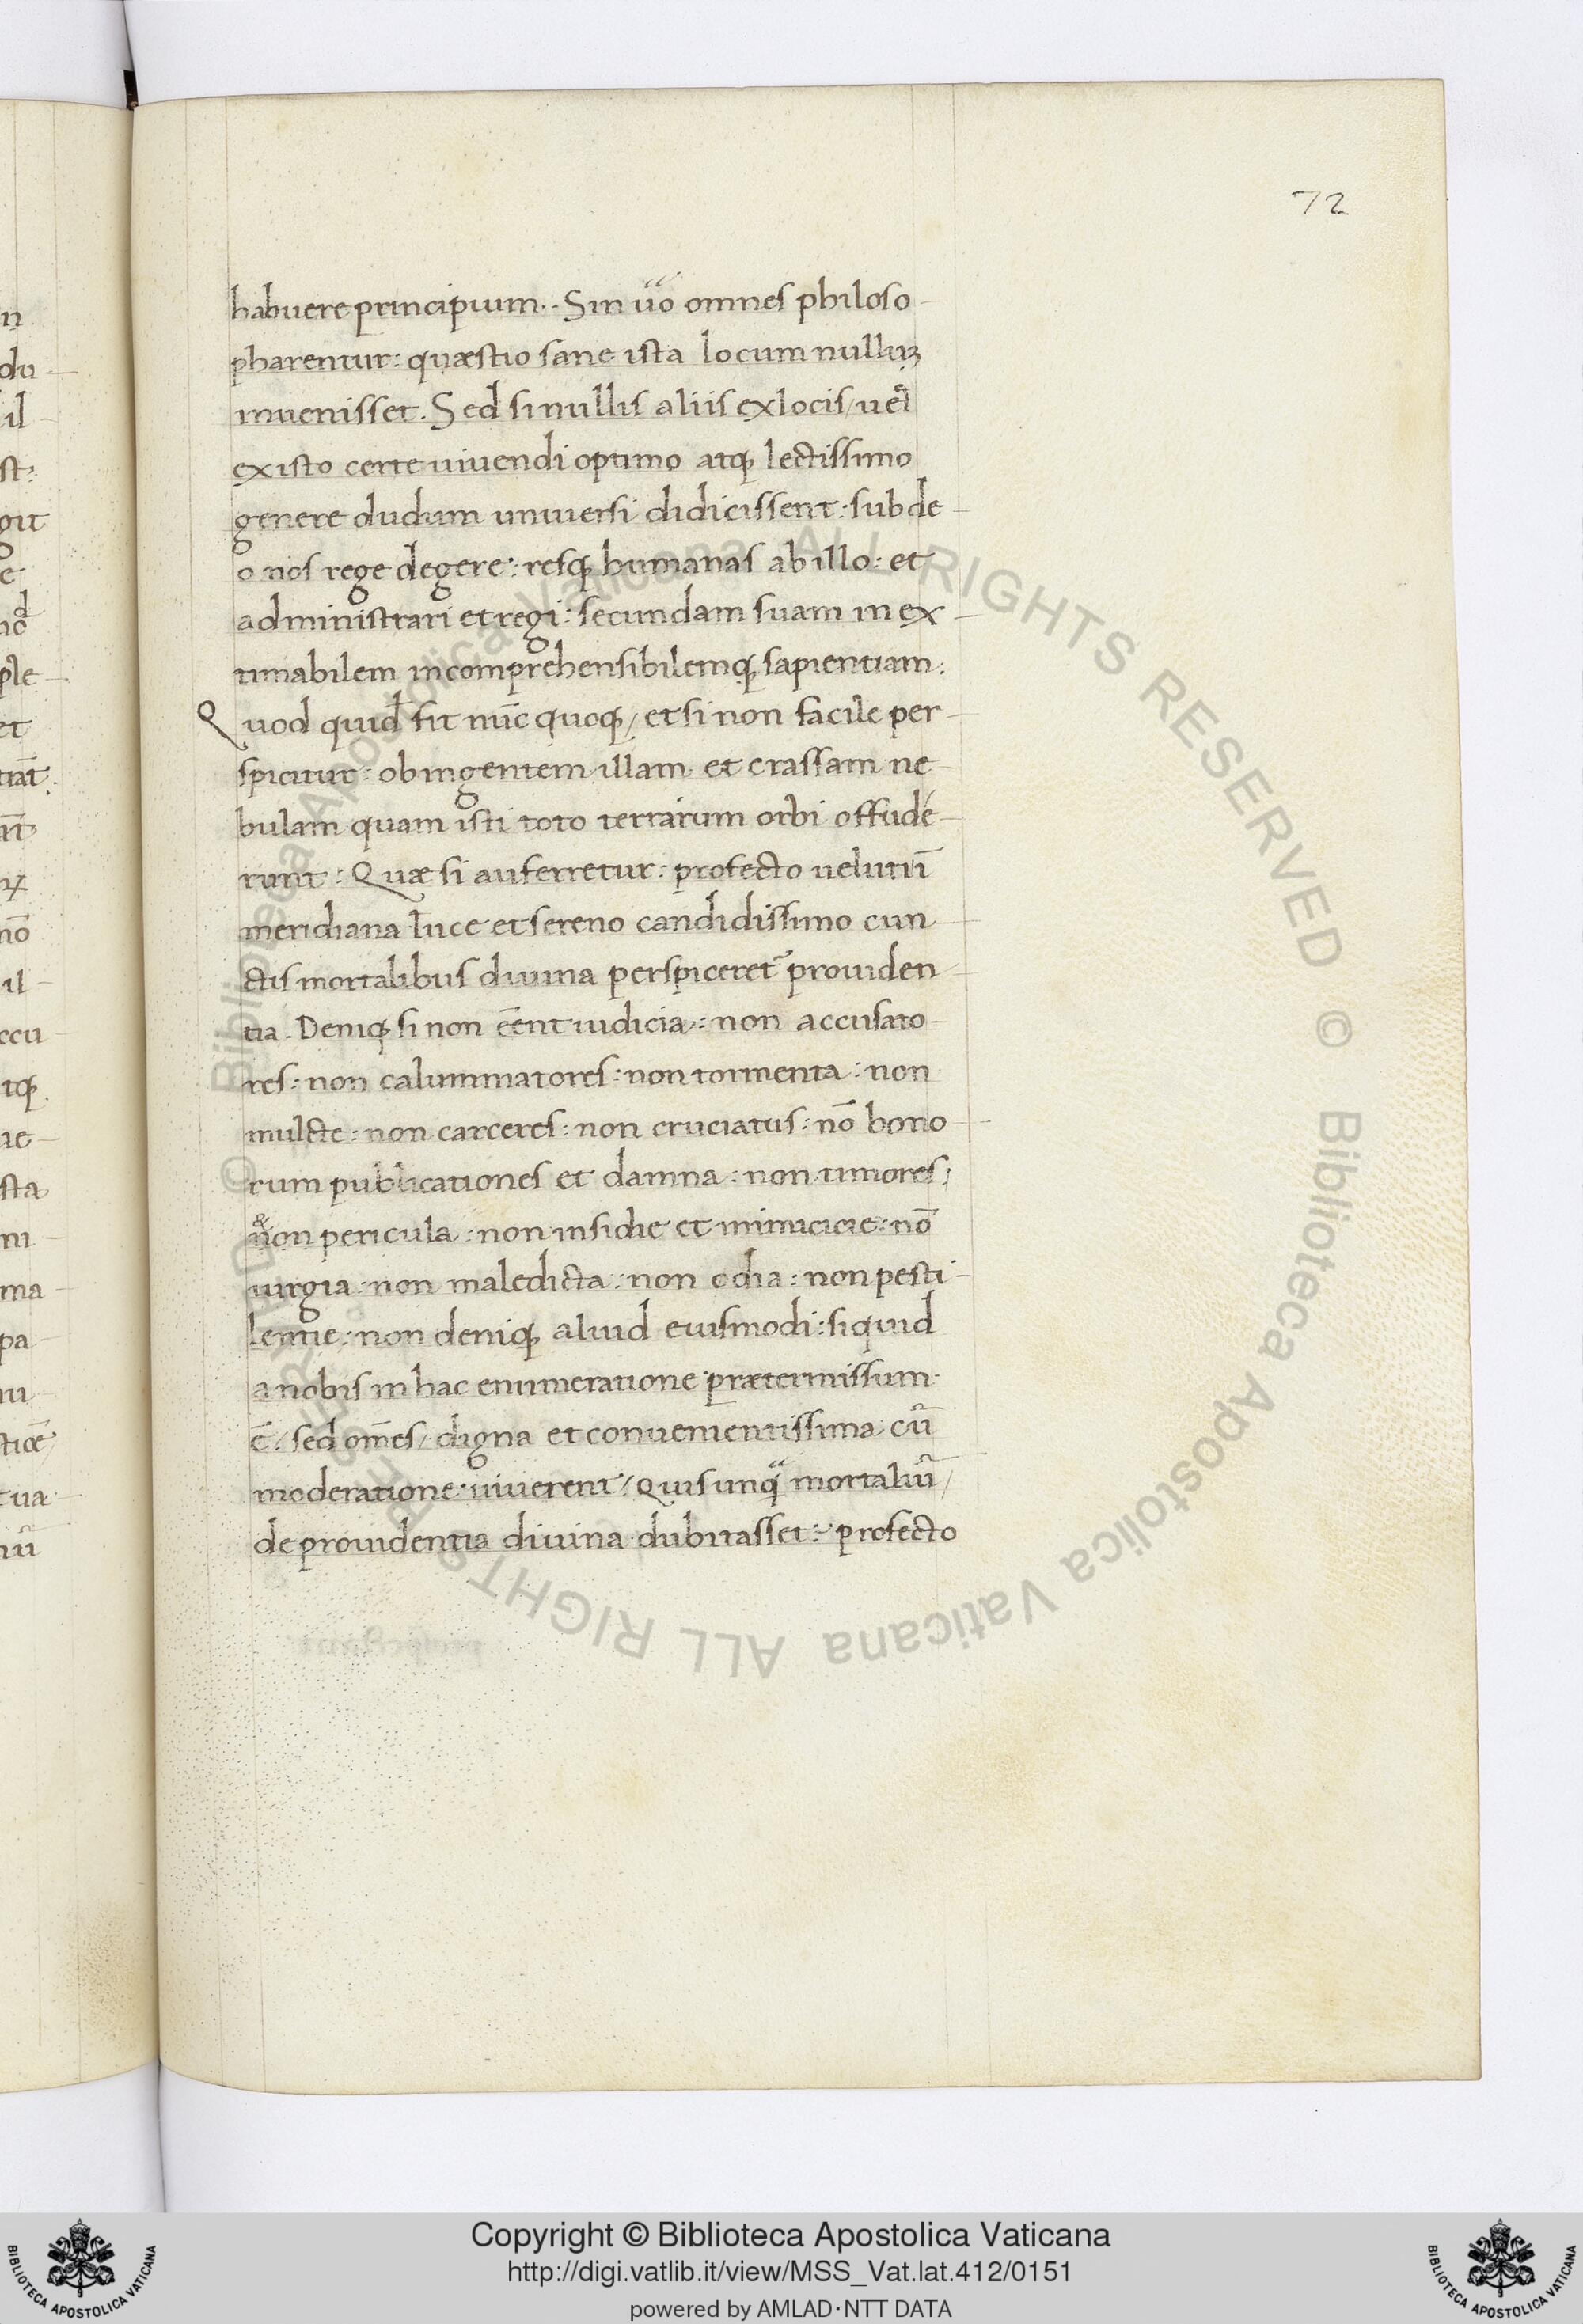 72
habuere principium. Sin ũo omnes philoso-
pharentur: quæstio sane ista locum nulluꝫ
inuenisset. Sed si nullis aliis ex locis/ uel
ex isto certe uiuendi optimo atqꝫ lectissimo
genere dudum uniuersi didicissent: sub de-
o nos rege degere: resqꝫ humanas ab illo: et
administrari et regi: secundam suam inex-
timabilem incomprehensibilemqꝫ sapientiam:
Quod quid̃ fit nũc quoqꝫ/ et si non facile per-
spicitur: ob ingentem illam et crassam ne-
bulam quam isti toto terrarum orbi offudé-
runt: Quæ si auferretur: profecto uelut ĩ
meridiana luce et sereno candidissimo cun-
ctis mortalibus diuina perspiceret̃ prouiden-
tia. Deniqꝫ si non eẽnt iudicia: non accusato-
res: non calumniatores: non tormenta: non
mulcte: non carceres: non cruciatus: nõ bono-
rum publicationes et damna: non timores:
non pericula: non insidie et inimicicie: nõ
iurgia: non maledicta: non odia: non pesti-
lentie: non deniqꝫ aliud eiusmodi: siquid
a nobis in hac enumeratione prætermissum
ẽ/ sed oms̃/ digna et conuenientissima cũ
moderatione uiuerent/ Quis unq̃ mortaliũ/
de prouidentia diuina dubitasset: profecto
© Biblioteca Apostolica Vaticana ALL RIGHTS RESERVED © Biblioteca Apostolica Vaticana ALL RIGHTS RESERVED
BIBLIOTECA APOSTOLICA VATICANA
Copyright © Biblioteca Apostolica Vaticana
http://digi.vatlib.it/view/MSS_Vat.lat.412/0151
powered by AMLAD·NTT DATA
BIBLIOTECA APOSTOLICA VATICANA